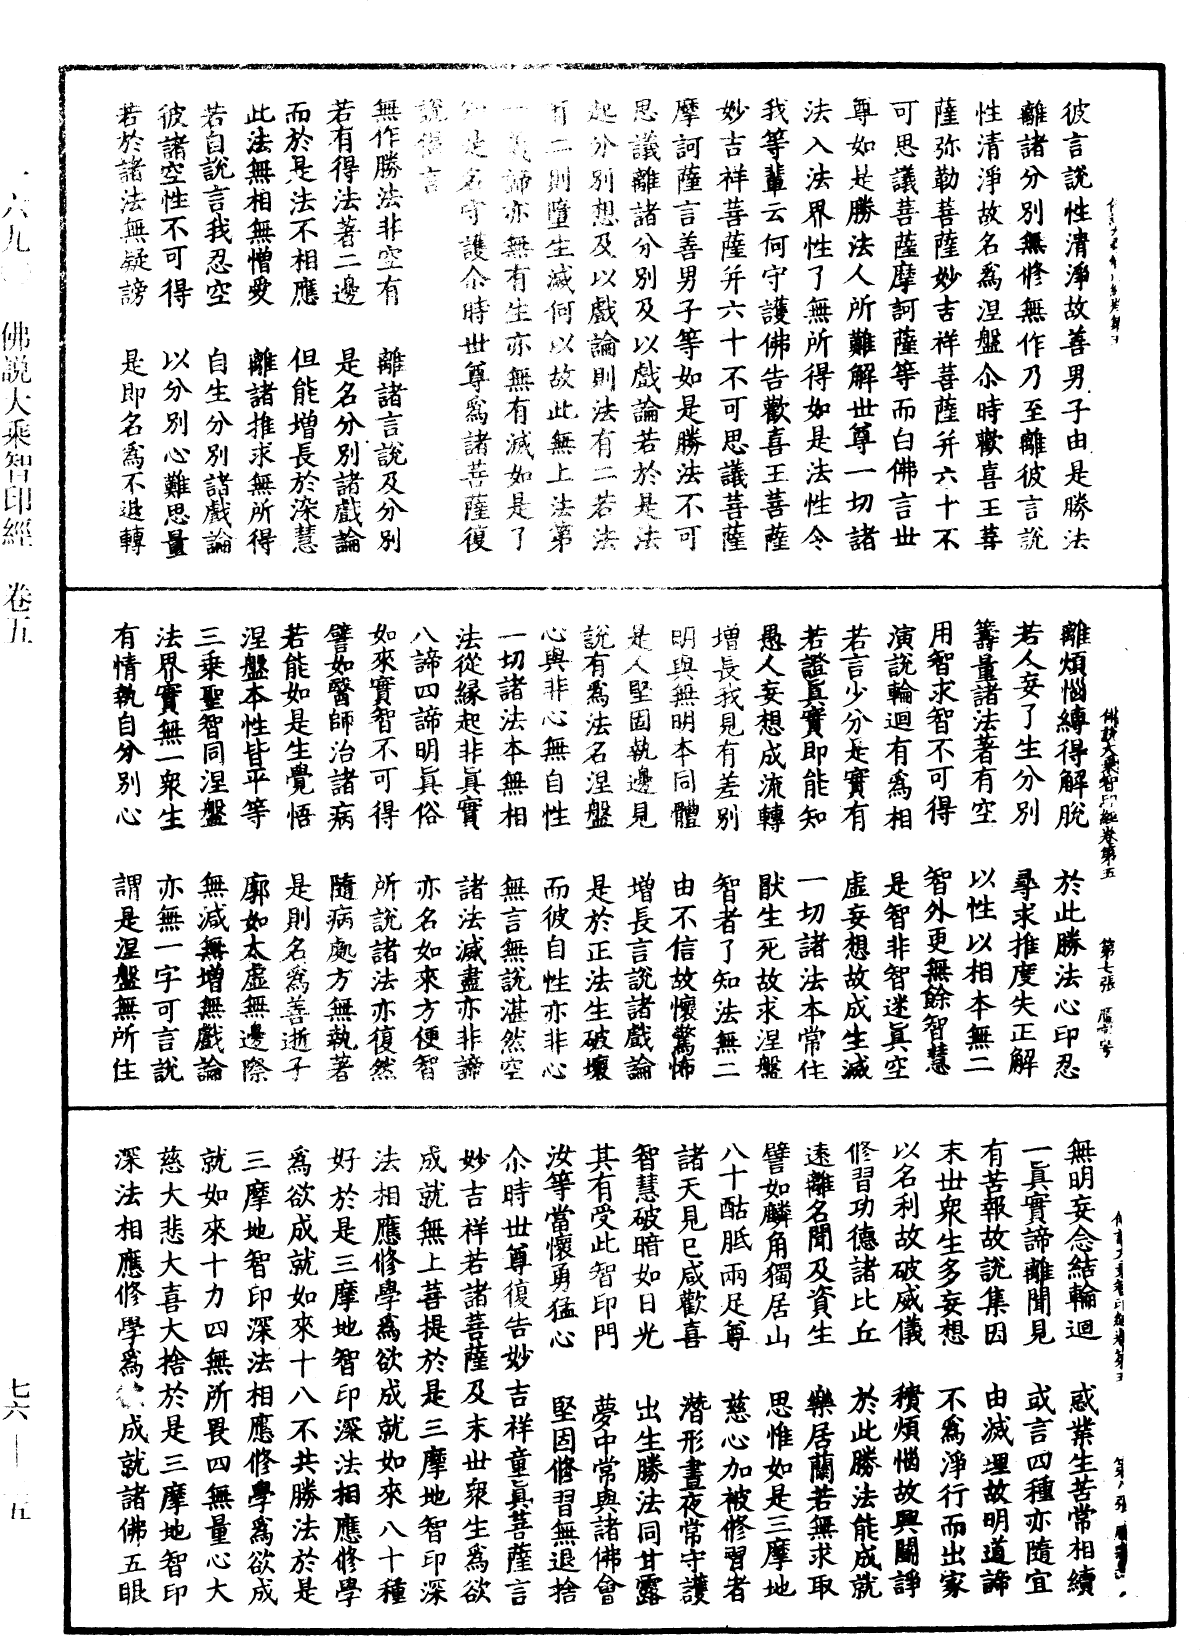 彼言說性清淨故善男子由是勝法
離諸分別無修無作乃至離彼言說
性清淨故名為涅盤尒時歡喜王菩
薩弥勒菩薩妙吉祥菩薩并六十不
可思議菩薩摩訶薩等而白佛言世
尊如是勝法人所難解世尊一切諸
法入法界性了無所得如是法性令
我等輩云何守護佛告歡喜王菩薩
妙吉祥菩薩并六十不可思議菩薩
摩訶薩言善男子等如是勝法不可
思議離諸分別及以戲論若於是法
起分別想及以戲論則法有二若法
有二則墮生滅何以故此無上法第
一義諦亦無有生亦無有滅如是了
知是名守護尒時世尊為諸菩薩復
說偈言
無作勝法非空有　離諸言說及分別
若有得法著二邊　是名分別諸戲論
而於是法不相應　但能增長於深慧
此法無相無憎愛　離諸推求無所得
若自說言我忍空　自生分別諸戲論
彼諸空性不可得　以分別心難思量
若於諸法無疑謗　是即名為不退轉
佛說大乘智印經卷第五　第七張
離煩惱縛得解脫　於此勝法心印忍
若人妄了生分別　尋求推度失正解
籌量諸法著有空　以性以相本無二
用智求智不可得　智外更無餘智慧
演說輪迴有為相　是智非智迷真空
若言少分是實有　虛妄想故成生滅
若證真實即能知　一切諸法本常住
愚人妄想成流轉　猒生死故求涅盤
增長我見有差別　智者了知法無二
明與無明本同體　由不信故懷驚怖
是人堅固執邊見　增長言說諸戲論
說有為法名涅盤　是於正法生破壞
心與非心無自性　而彼自性亦非心
一切諸法本無相　無言無說湛然空
法從緣起非真實　諸法滅盡亦非諦
八諦四諦明真俗　亦名如來方便智
如來實智不可得　所說諸法亦復然
譬如醫師治諸病　隨病處方無執著
若能如是生覺悟　是則名為善逝子
涅盤本性皆平等　廓如太虛無邊際
三乘聖智同涅盤　無滅無增無戲論
法界實無一眾生　亦無一字可言說
有情執自分別心　謂是涅盤無所住
無明妄念結輪迴　惑業生苦常相續
一真實諦離聞見　或言四種亦隨宜
有苦報故說集因　由滅理故明道諦
末世眾生多妄想　不為淨行而出家
以名利故破威儀　積煩惱故興鬬諍
修習功德諸比丘　於此勝法能成就
遠離名聞及資生　樂居蘭若無求取
譬如麟角獨居山　思惟如是三摩地
八十酤胝兩足尊　慈心加被修習者
諸天見已咸歡喜　潛形晝夜常守護
智慧破暗如日光　出生勝法同甘露
其有受此智印門　夢中常與諸佛會
汝等當懷勇猛心　堅固修習無退捨
尒時世尊復告妙吉祥童真菩薩言
妙吉祥若諸菩薩及末世眾生為欲
成就無上菩提於是三摩地智印深
法相應修學為欲成就如來八十種
好於是三摩地智印深法相應修學
為欲成就如來十八不共勝法於是
三摩地智印深法相應修學為欲成
就如來十力四無所畏四無量心大
慈大悲大喜大捨於是三摩地智印
深法相應修學為欲成就諸佛五眼
一六九
佛說大乘智印經　卷五
七六—